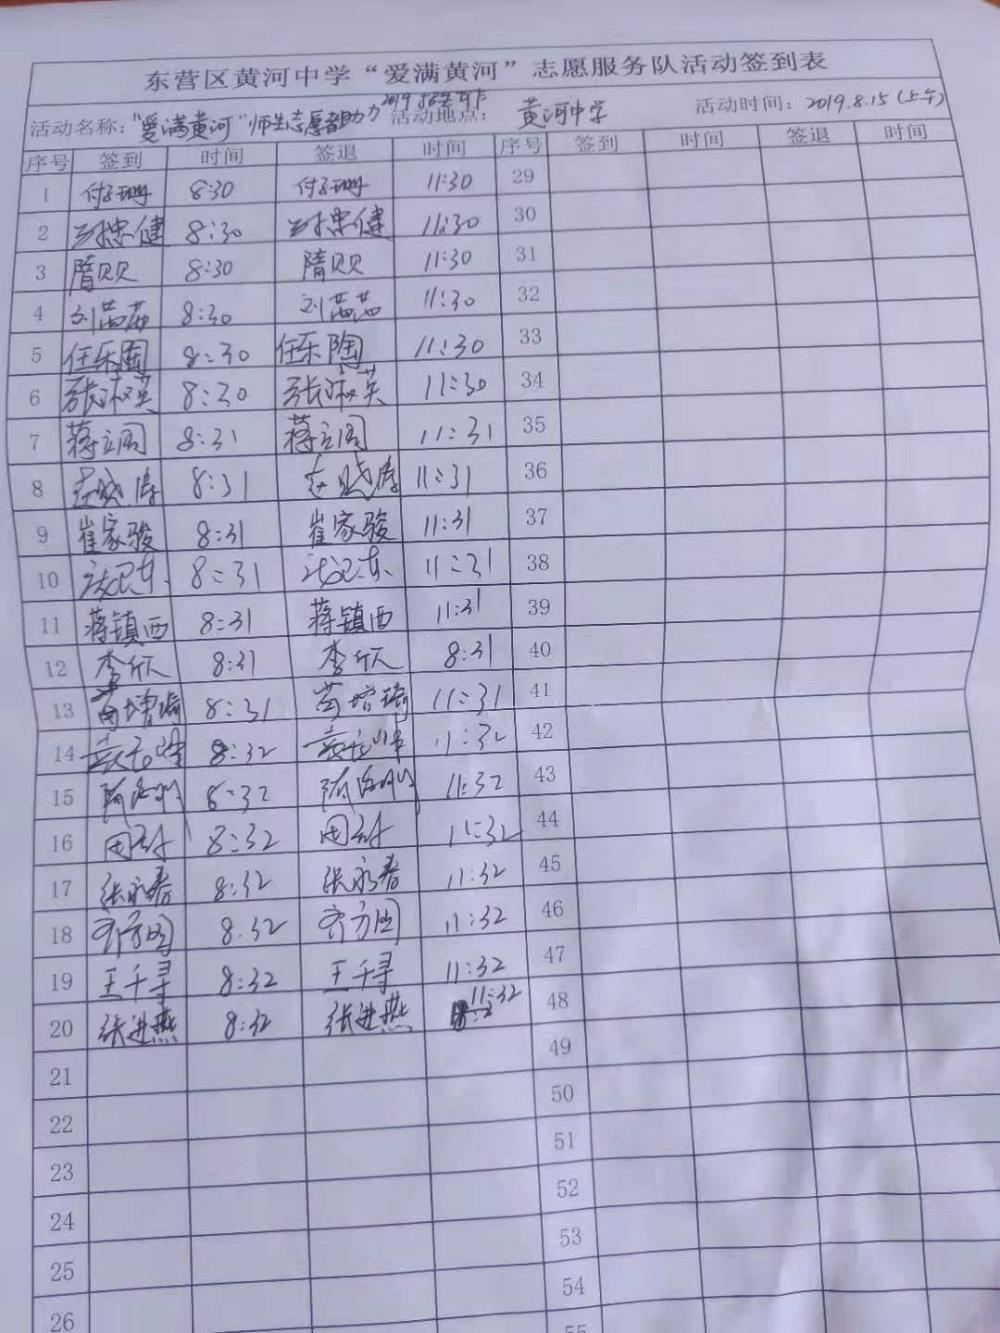 东营区黄河中学“爱满黄河”志愿服务队活动签到表
活动名称：“爱满黄河”师生志愿者助力2019 活动地点：黄河中学 活动时间：2019.8.15（上午）
序号 签到 时间 签退 时间 序号 签到 时间 签退 时间
1 8:30 11:30 29
2 8:30 11:30 30
3 隋贝贝 8:30 隋贝贝 11:30 31
4 刘茜茜 8:30 刘茜茜 11:30 32
5 任乐陶 8:30 任乐陶 11:30 33
6 张淑英 8:30 张淑英 11:30 34
7 蒋立阁 8:31 蒋立阁 11:31 35
8 8:31 11:31 36
9 崔家骏 8:31 崔家骏 11:31 37
10 8:31 11:31 38
11 蒋镇西 8:31 蒋镇西 11:31 39
12 李欣 8:31 李欣 8:31 40
13 8:31 11:31 41
14 8:32 11:32 42
15 8:32 11:32 43
16 8:32 11:32 44
17 张永春 8:32 张永春 11:32 45
18 齐方圆 8:32 齐方圆 11:32 46
19 王千寻 8:32 王千寻 11:32 47
20 张进燕 8:32 张进燕 11:32 48
21 49
22 50
23 51
24 52
25 53
26 54
55